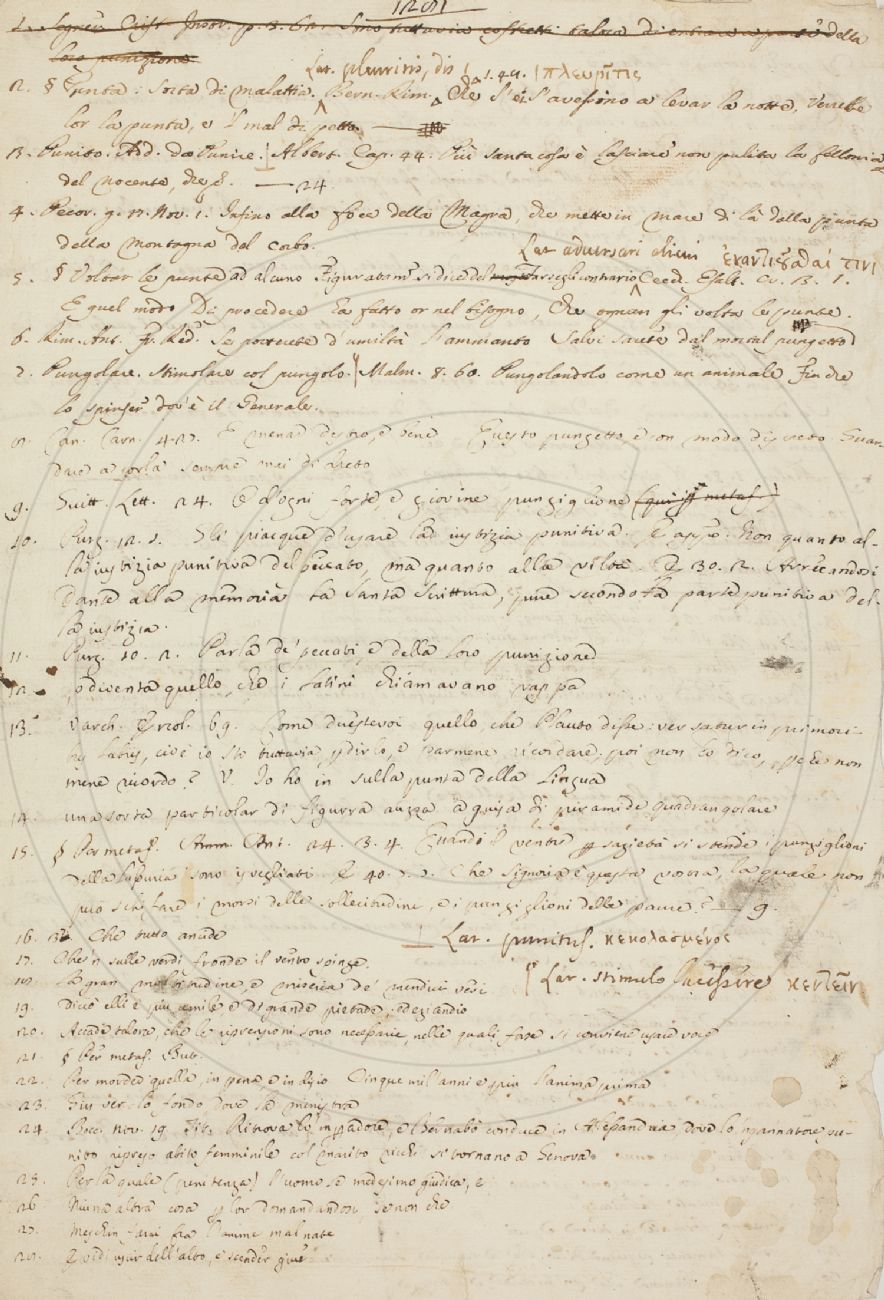 1281
1. Segner. Crist. Instr. p. 3. 62. Sono tuttavia costretti talora di entrare a parte della
loro punizione
Lat. pleuritis, dis πλευρῖτις
2. § Punta: Sorta di malattia. Bern. Rim. Che s'ei s'avessino a levar la notte, verrebbe
lor la punta, e 'l mal di petto.
3. Punito. Add. da Punire. Albert. Cap. 44. Più santa cosa è lasciare non pulita la fellonia
del nocente, che — 24.
4. Pecor. g. Nov. 1. Infino alla foce della Magra, che mette in mare di là dalla punta
della montagna del Corbo.
Lat. adversari alicui ἐναντιοῦσθαί τινι
5. § Voltar le punte ad alcuno Figuratam. si dice del farsegli contrario Cecch. Esalt. cr. 3. 1.
E quel modo Di procedere ha fatto or nel bisogno, Che ognun gli volta le punte.
6. Rim. Ant. Fr. Red. Se porterete d'umiltà l'ammanto Salvi sarete dal mortal pungetto
7. Pungolare. Stimolare col pungolo. Malm. 8. 60. Pungolandolo come un animale Finche
lo spinser dov'è il Generale.
8. Can. Carn. 47. E menar destro, e bene Questo pungetto, e con modo discreto Guar-
dare a corla sempre mai di dreto
9. Guitt. Lett. 24. E d'ogni forte e giovine pungiglione
10. Purg. 12. 1. Gli piacque d'usare la giustizia punitiva. E appr. Non quanto al-
la giustizia punitiva del peccato, ma quanto alla viltà. E 30. 2. Arrecandosi
Dante alla memoria la Santa Scrittura, pure secondo la parte punitiva del-
la giustizia.
11. Purg. 10. 2. Parla de' peccati, e della loro punizione
12. diventa quello, che i Latini chiamavano vappa
13. Varch. Ercol. 69. Come dicestevoi quello, che Plauto disse: versatur in primori-
bus labris, cioè io sto tuttavia per dirlo, e parmene ricordare, poi non lo dico, perchè non
mene ricordo? V. Io ho in sulla punta della lingua
14. una sorta particolar di figura auzza a guisa di piramide quadrangolare
15. § Per metaf. Amm. Ant. 24. 3. 4. Quando 'l ventre per sazietà si stende i pungiglioni
della lussuria sono isvegliati. E 40. 7. 7. Che signoria è questa vostra, la quale non
può schifare i morsi delle sollecitudini, e i pungiglioni delle paure? — 9.
16. Che tutto ancide
Lat. punitus. κεκολασμένος
17. Che 'n sulle verdi fronde il vento spinge.
18. La gran moltitudine, e miseria de' mendici vedi
Lat. stimulo lacessere κεντεῖν
19. Dice elli è più umile e di grande pietade, odeziandio
20. Accade talora, che le riprensioni sono necessarie, nelle quali forse si conviene usare voce
21. § Per metaf. But.
22. Per morder quella, in pena, e in disio Cinque mil'anni e più l'anima prima
23. Giù ver lo fondo dove la ministra
24. Bocc. Nov. 19. Tit. Ritrova lo 'ngannadore, e Bernabò conduce in Alessandria dove lo 'ngannatore pu-
nito ripreso abito femminile col marito ricchi si tornano a Genova
25. Per la quale (penitenza) l'uomo se medesimo giudica, e
26. Niuna altra cosa per lor domandandosi, se non che
27. Meschin fra l'anime mal nate
28. E vidi uscir dell'alto, e scender giue